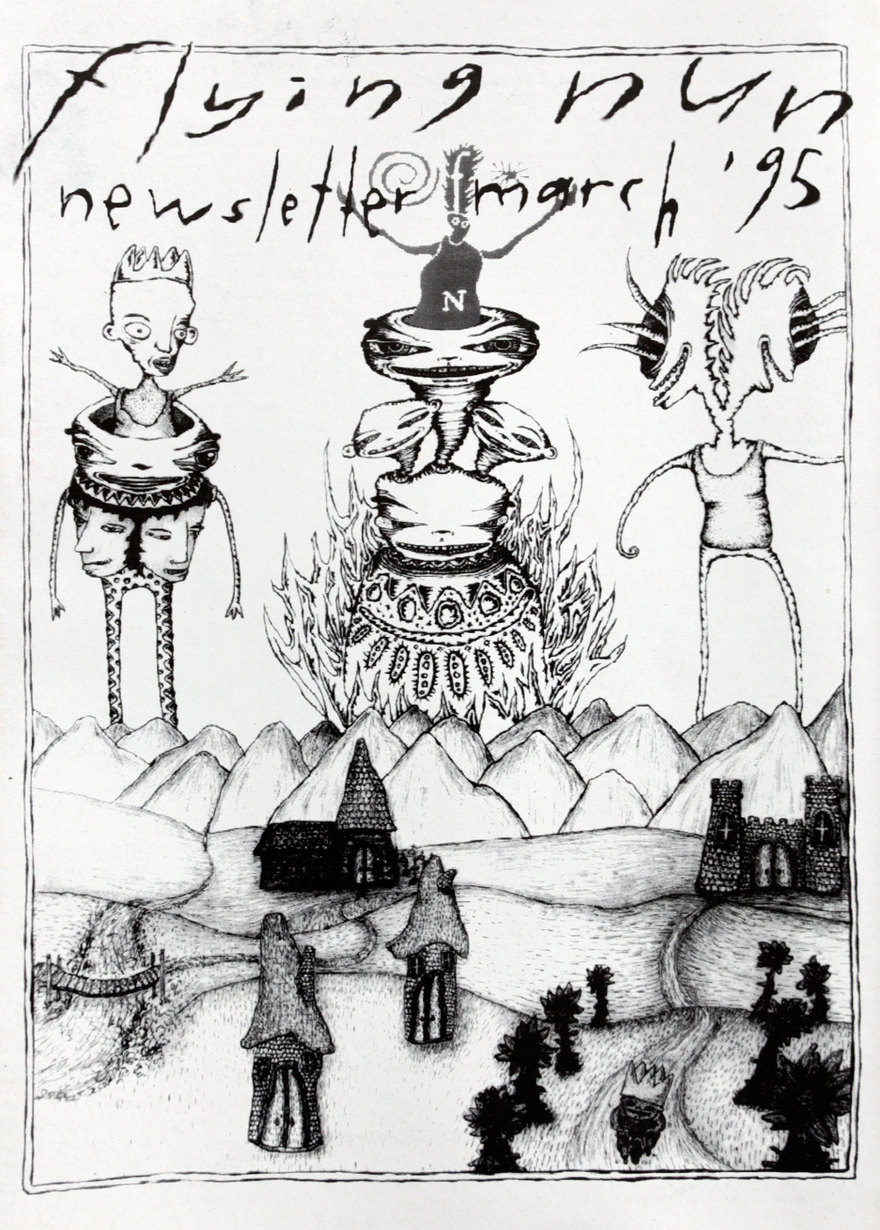 flying nun
newsletter march '95
f
N